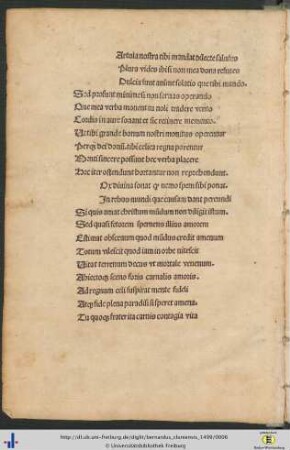 Artula nostra tibi mandat dilecte salutes
Plura vides ibi si non mea dona refutes
Dulcia sunt anime solatia que tibi mando
Sed prosunt minime si non serues operando
Que mea verba monent tu noli tradere vento
Cordis in aure sonant et sic retinere memento
Ut tibi grande bonum nostri monitus operentur
Perqȝ dei donū tibi celica regna parentur
Menti sincere possunt hec verba placere
Hec iter ostendunt hortantur non reprehendunt
Vox diuina sonat qȝ nemo spem sibi ponat
In rebus mundi que causam dant pereundi
Si quis amat christum mūdum non diligit istum
Sed quasi fetorem spernens illius amorem
Estimat obscenum quod mūdus credit amenum
Totum vilescit quod iam in orbe nitescit
Vitat terrenum decus vt mortale venenum
Abiectoqȝ ceno fit carnalis amoris
Ad regnum celi suspirat mente fideli
Atqȝ fide plena paradisi sperat amena
Tu quoqȝ frater ita carnis contagia vita
http://dl.ub.uni-freiburg.de/diglit/bernardus_clunensis_1499/0006
© Universitätsbibliothek Freiburg